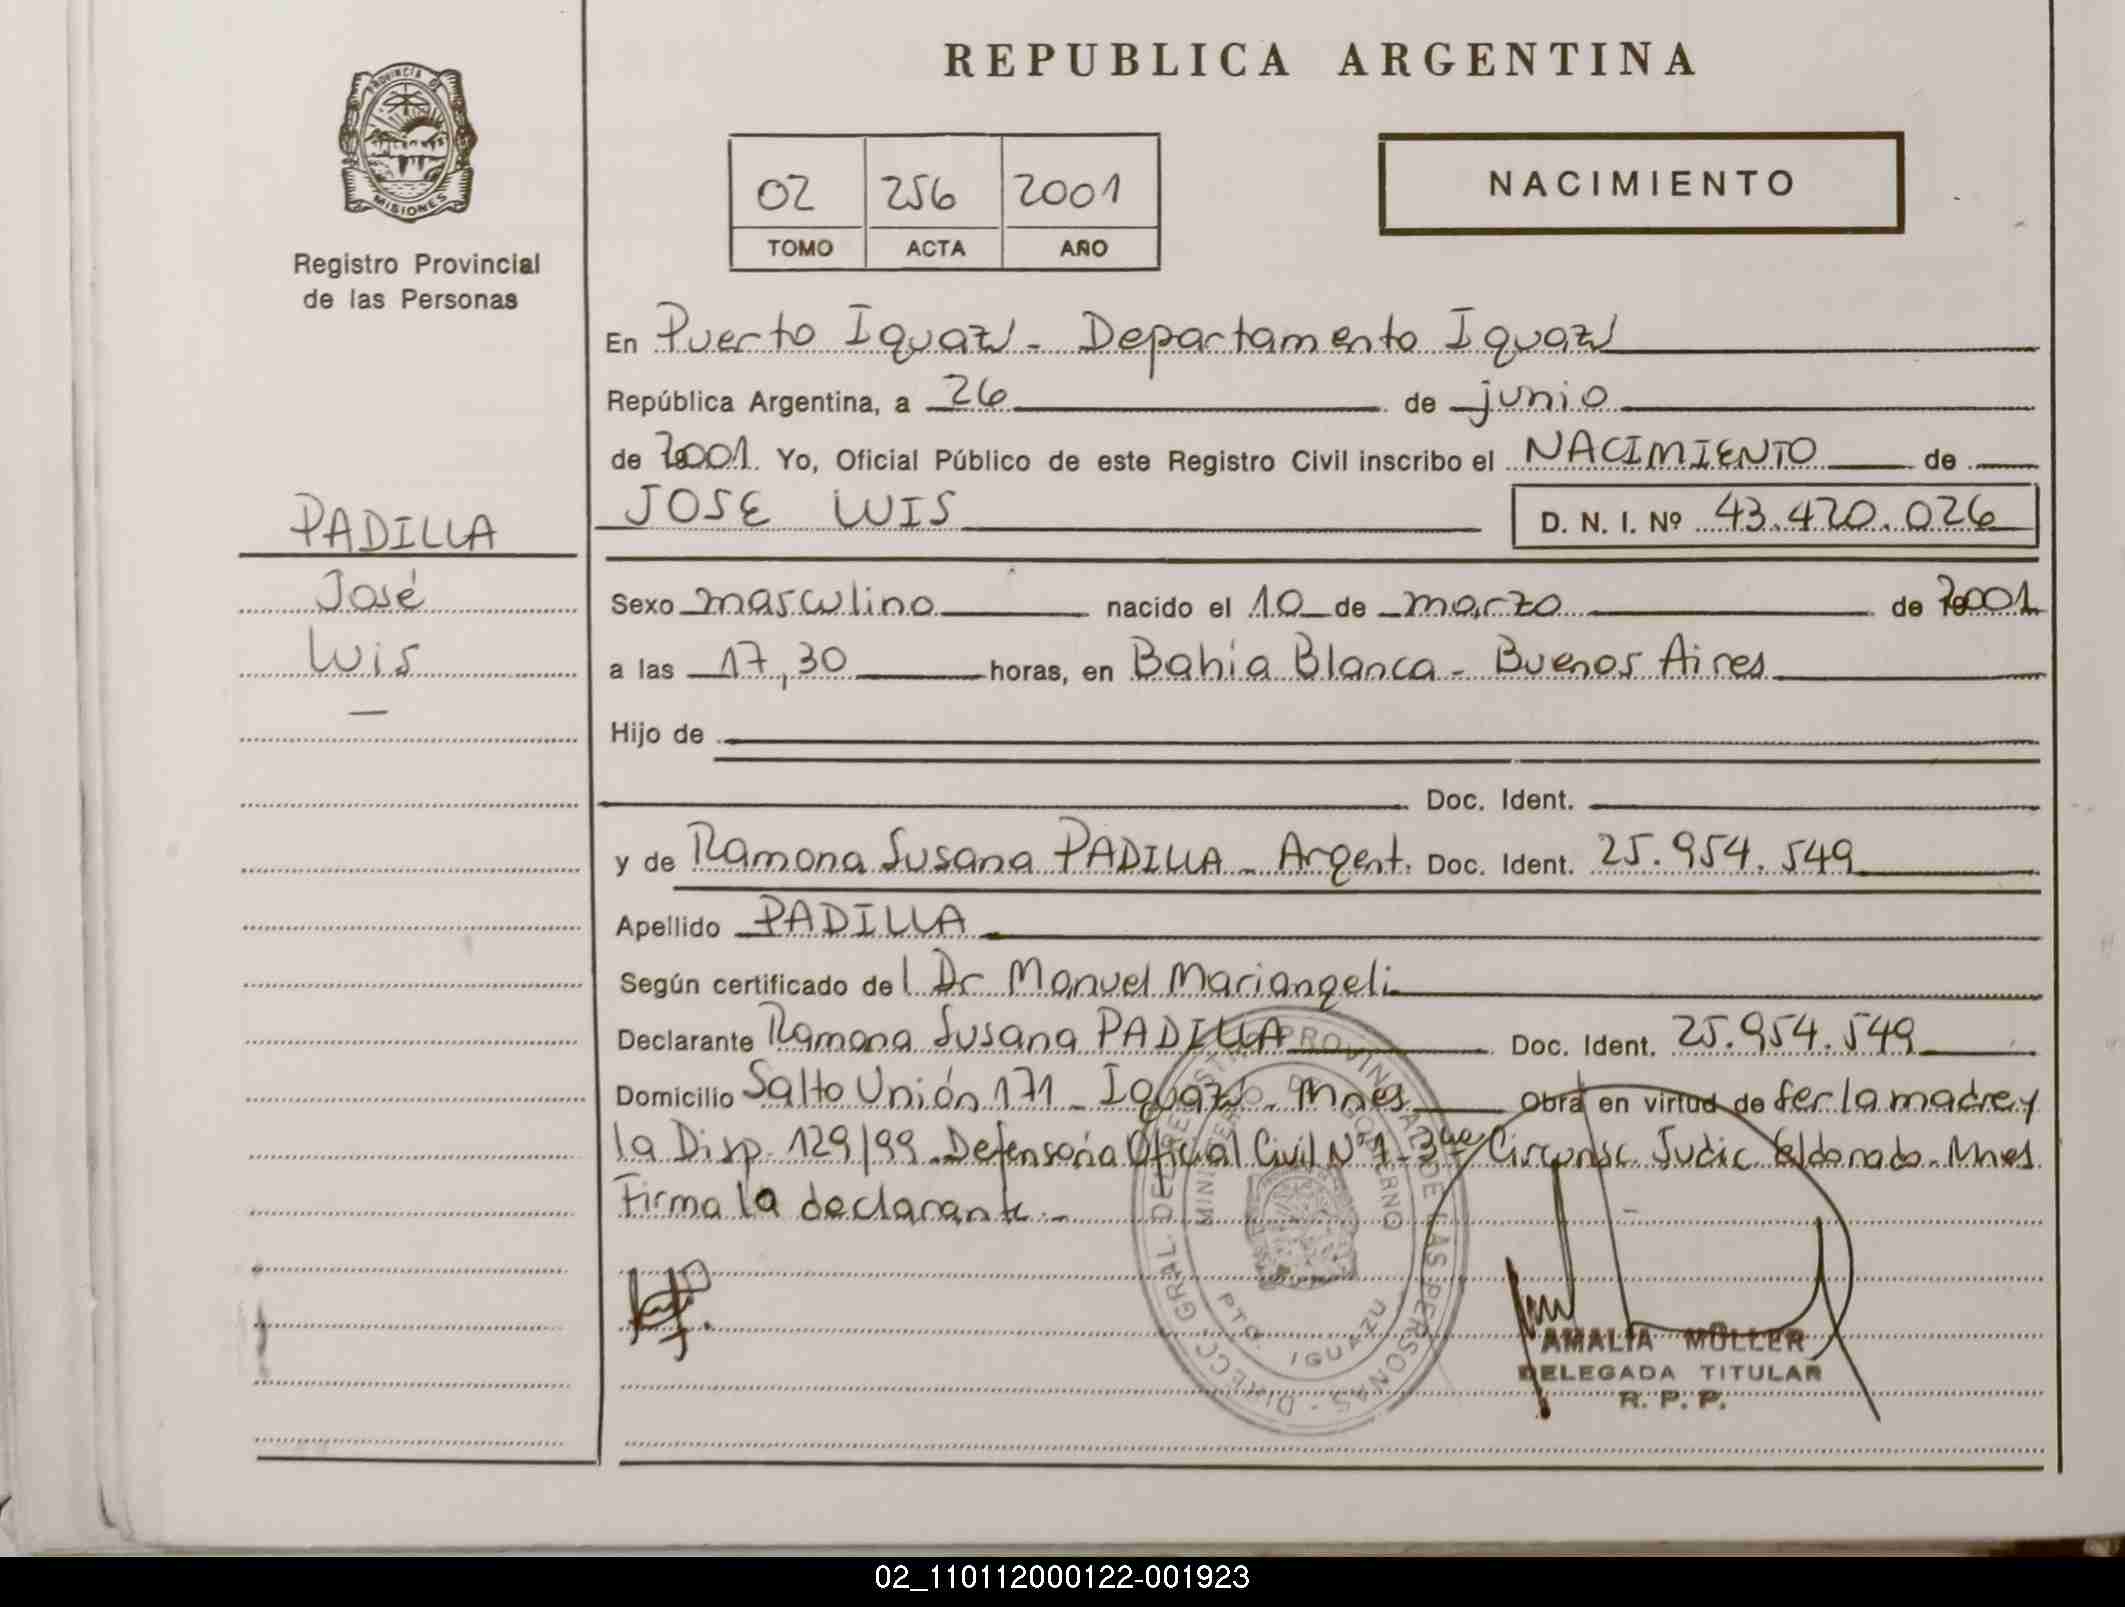 REPUBLICA ARGENTINA
PROVINCIA DE MISIONES
Registro Provincial
de las Personas
02 256 2001
TOMO ACTA AÑO
NACIMIENTO
En Puerto Iguazú - Departamento Iguazú
República Argentina, a 26 de junio
de 2001. Yo, Oficial Público de este Registro Civil inscribo el NACIMIENTO de
JOSE LUIS D. N. I. Nº 43.420.026
PADILLA
José
Luis
—
Sexo masculino nacido el 10 de marzo de 2001
a las 17,30 horas, en Bahía Blanca - Buenos Aires
Hijo de
Doc. Ident.
y de Ramona Susana PADILLA - Argent. Doc. Ident. 25.954.549
Apellido PADILLA
Según certificado del Dr Manuel Mariangeli
Declarante Ramona Susana PADILLA Doc. Ident. 25.954.549
Domicilio Salto Unión 171 - Iguazú - Mnes Obra en virtud de ser la madre y
la Disp. 129/99 Defensoría Oficial Civil Nº 1 - 3ra Circunsc. Judic. Eldorado - Mnes.
Firma la declarante.-
DIRECC. GRAL. DEL REGISTRO PROVINCIAL DE LAS PERSONAS -
MINISTERIO DE GOBIERNO
PTO. IGUAZU
AMALIA MÜLLER
DELEGADA TITULAR
R. P. P.
02_110112000122-001923